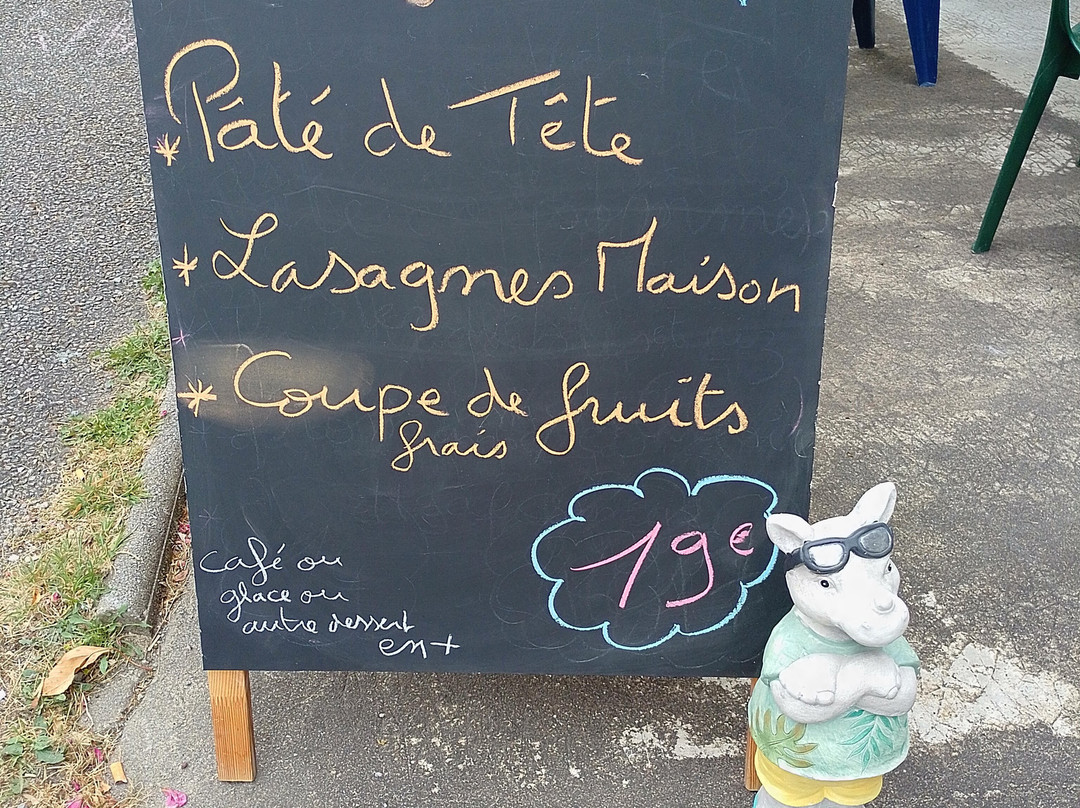 * Pâté de Tête
* Lasagnes Maison
* Coupe de fruits
frais
19€
café ou
glace ou
autre dessert
en +